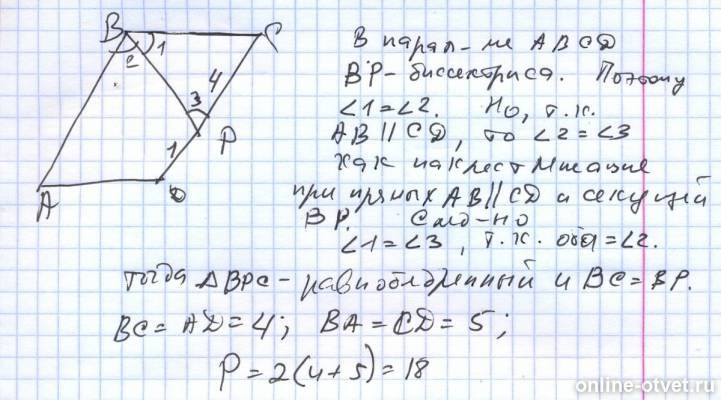 B 1 C
2
4
3
1 P
A D
В парал-ме ABCD
BP-биссектриса. Поэтому
∠1=∠2. Но, т.к.
AB || CD, то ∠2=∠3
как накрест лежащие
при прямых AB||CD и секущей
BP. След-но
∠1=∠3, т.к. оба =∠2.
тогда ΔBPC - равнобедренный и BC=BP.
BC = AD = 4; BA = CD = 5;
P = 2(4+5) = 18
online-otvet.ru